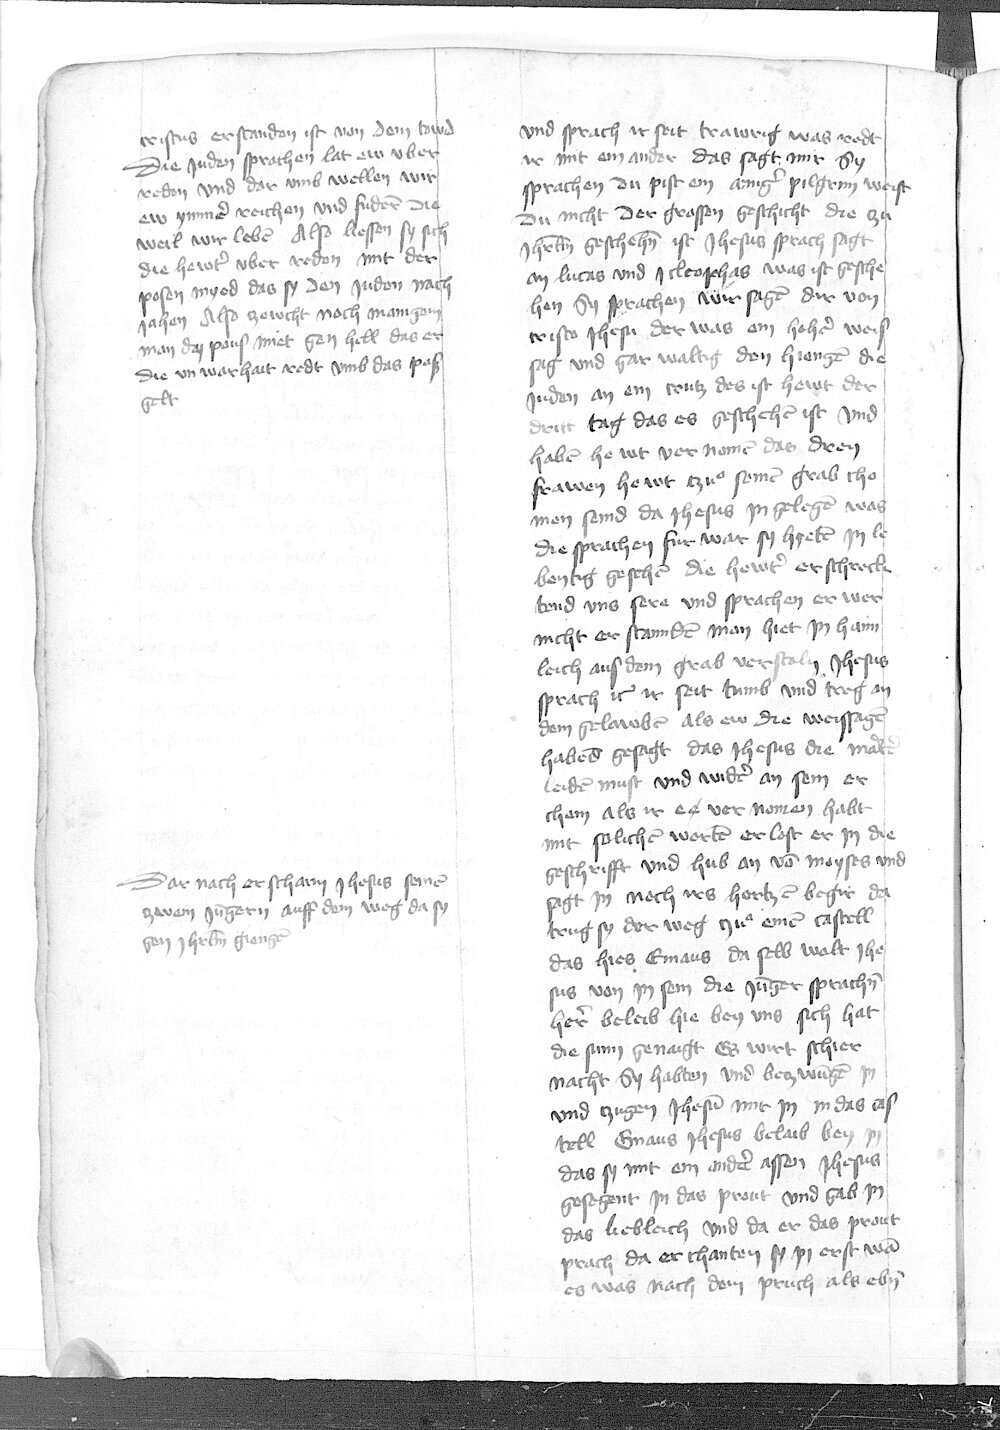 cristus erstanden ist von dem towd
Die Juden sprachen lat ew vber
reden vnd dar vmb wellen wir
ew ymmer̄ reichen vnd fudern̄ die
weil wir lebē Also liessen sy sich
die hewtr̄ vber reden mit der
posen myed das sy den Juden nach
jahen Also zewcht noch manigen
man der pous miet gen hell das er
die vn warhait redt vmb das pos
gelt
Dar nach erscham Jhesus seinē
zwein Jūgern auff dem weg da sy
gen Jhrlm̄ giengē
vnd sprach ir seit trawrig was redt
ir mit ein ander das sagt mir Sy
sprachen Du pist ein ainigr̄ pilgrim weist
Du nicht Der grossen geschicht die zu
Jhrlm̄ geschehn̄ ist Jhesus sprach sagt
an lucas vnd cleophas was ist gesche
hen Sy sprachen wir sagē dir von
cristo Jhesu der was ein hoher̄ weis
sag vnd gar waltig den hiengē die
Juden an ein crutz des ist hewt der
dritt tag das es geschehē ist Vnd
habē he wt ver nomē das drey
frawen hewt czuͦ seinē grab cho
men seind da Jhesus jn gelegē was
die sprachen fur war sy hietē jn le
bentig gesehē die hewtr̄ erschreck
tend vns sere vnd sprachen er wer
nicht er standē man hiet jn haim
leich aus dem grab verstoln Jhesus
sprach ir seit tumb vnd treg an
dem gelawbē als ew die weissagē
habend gesagt das Jhesus die martr̄
leidē must vnd widr̄ an sein er
chem als ir ee ver nomen habt
mit solichē wortē erlost er jn die
geschrifft vnd hub an vō moyses vnd
sagt jn nach irs hertzē begir da
trug sy der weg czuͦ einē castell
das hies Emaus da selb wolt Jhe
sus von jn sein die Jūger sprachn̄
her̄ beleib hie bey vns sich hat
die sunn genaigt Es wirt schier
nacht Sy habten vnd betzwūgē jn
vnd czugen Jhesū mit jn in das cas
tell Emaus Jhesus belaib bey jn
das sy mit ein andr̄ assen Jhesus
gesegent jn das prout vnd gab jn
das liebleich vnd da er das prout
prach da erchanten sy jn erst wā
es was nach dem pruch als ebn̄